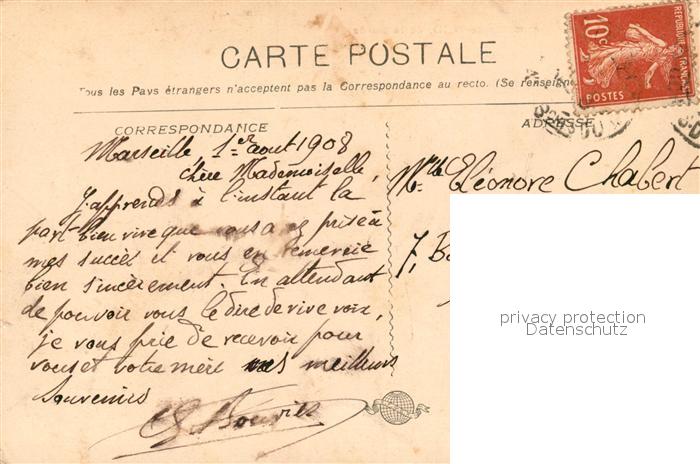 CARTE POSTALE
Tous les Pays étrangers n'acceptent pas la Correspondance au recto. (Se renseigne
REPUBLIQUE FRANÇAISE
10c
POSTES
CORRESPONDANCE
ADRESSE
Marseille, 1er aout 1908
Chère Mademoiselle,
J'apprends à l'instant la
part bien vive que vous avez prise à
mes succès et vous en remercie
bien sincèrement. En attendant
de pouvoir vous le dire de vive voix,
je vous prie de recevoir pour
vous et votre mère mes meilleurs
Souvenirs
Mlle Eléonore Chabert
7,
privacy protection
Datenschutz